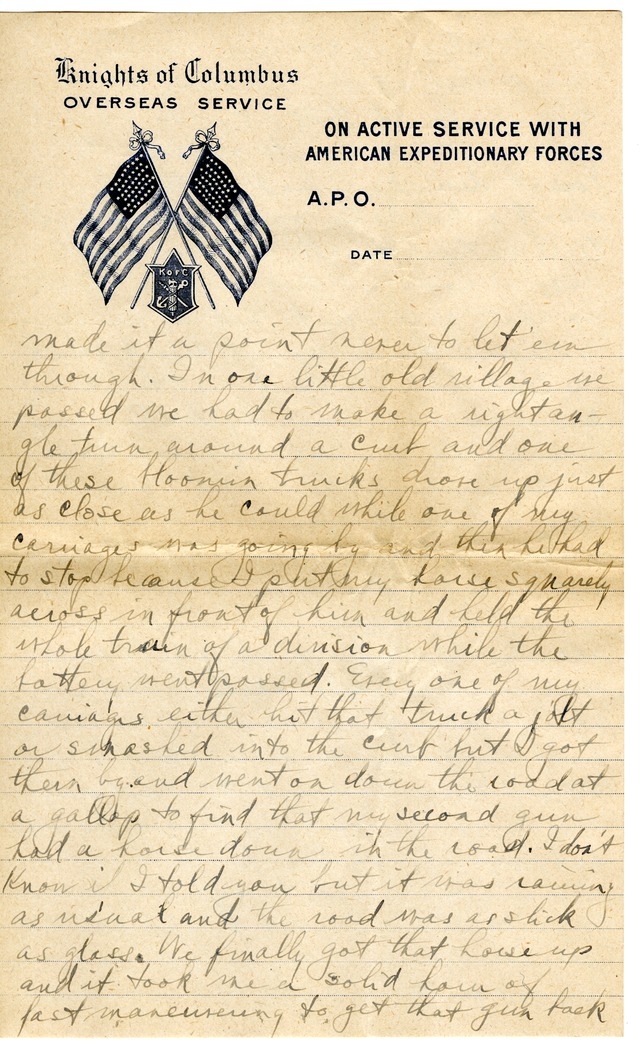 Knights of Columbus
OVERSEAS SERVICE
ON ACTIVE SERVICE WITH
AMERICAN EXPEDITIONARY FORCES
A.P.O.
DATE
K of C
made it a point never to let em
through. In one little old village we
passed we had to make a right an-
gle turn around a curb and one
of these bloomin trucks drove up just
as close as he could while one of my
carriages was going by and then he had
to stop because I put my horse squarely
across in front of him and held the
whole train of a division while the
battery went passed. Every one of my
carriages either hit that truck a jolt
or smashed into the curb but I got
them by and went on down the road at
a gallop to find that my second gun
had a horse down in the road. I don't
know if I told you but it was raining
as usual and the road was as slick
as glass. We finally got that horse up
and it took me a solid hour of
fast maneuvering to get that gun back